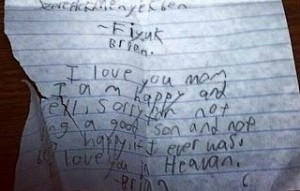 ~Fiyuk
Brian.
I love you mom
I am happy and
well, sorry for not
being a good son and not
happy, if I ever was.
I love you in Heavan.
Brian